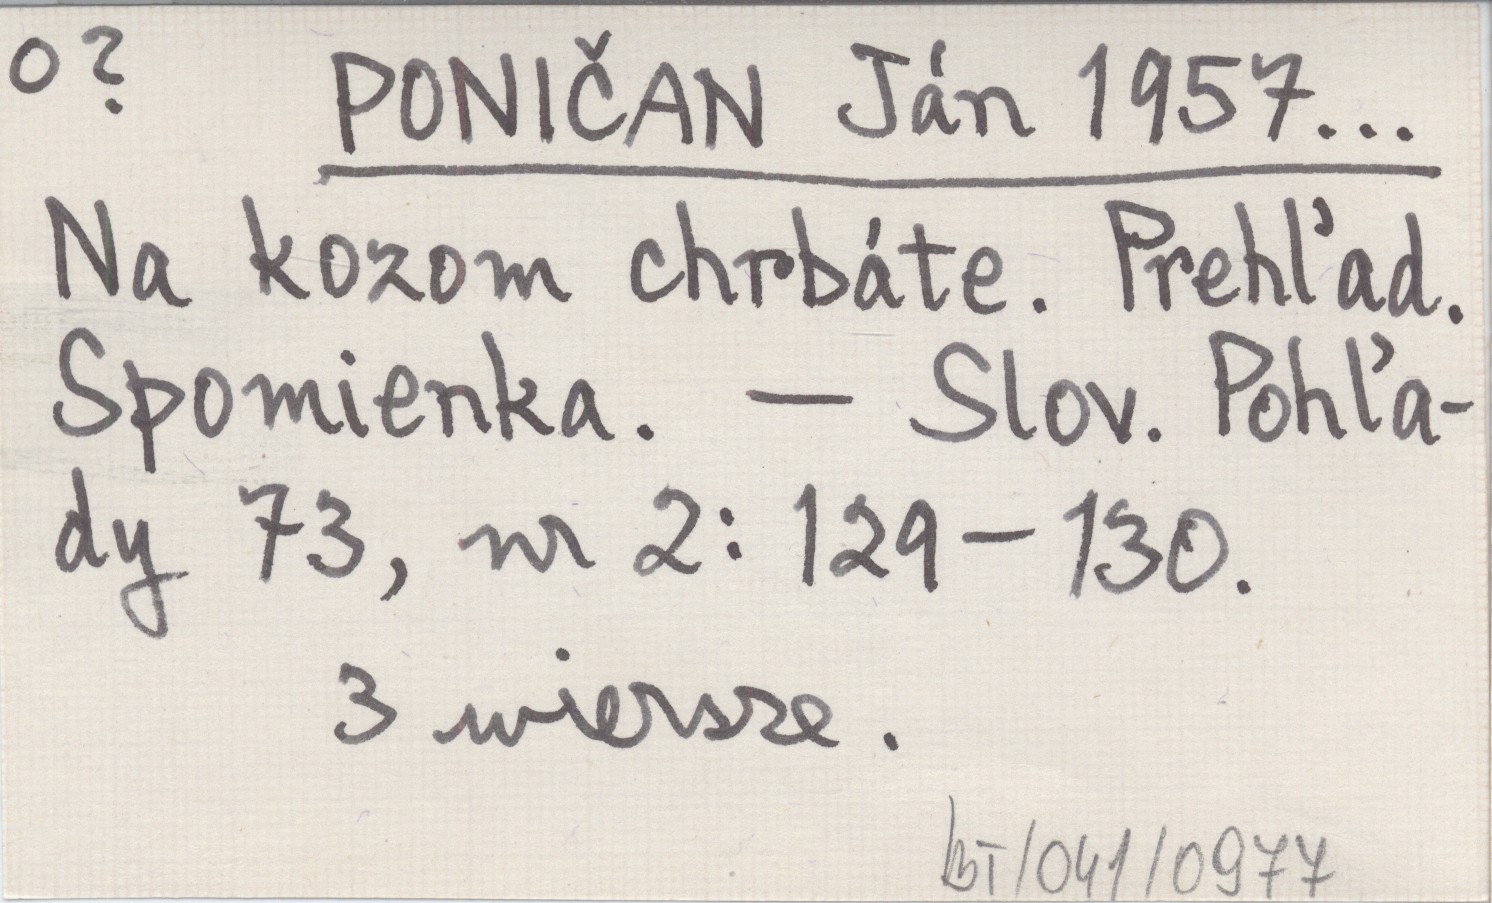 o? PONIČAN Ján 1957...
Na kozom chrbáte. Prehľad.
Spomienka. — Slov. Pohľa-
dy 73, nr 2: 129-130.
3 wiersze.
BT/041/0977